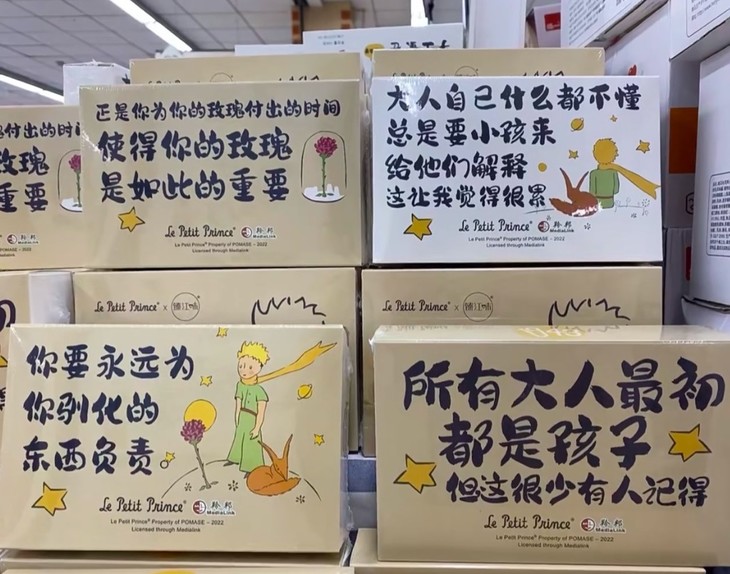 正是你为你的玫瑰付出的时间
使得你的玫瑰
是如此的重要
Le Petit Prince
羚邦
MediaLink
Le Petit Prince® Property of POMASE – 2022
Licensed through Medialink
大人自己什么都不懂
总是要小孩来
给他们解释
这让我觉得很累
Le Petit Prince
羚邦
MediaLink
Le Petit Prince® Property of POMASE – 2022
Licensed through Medialink
付出的时间
玫瑰
重要
Le Petit Prince ×
Le Petit Prince ×
你要永远为
你驯化的
东西负责
Le Petit Prince®
羚邦
MediaLink
Le Petit Prince® Property of POMASE – 2022
Licensed through Medialink
所有大人最初
都是孩子
但这很少有人记得
Le Petit Prince®
羚邦
MediaLink
Le Petit Prince® Property of POMASE – 2022
Licensed through Medialink